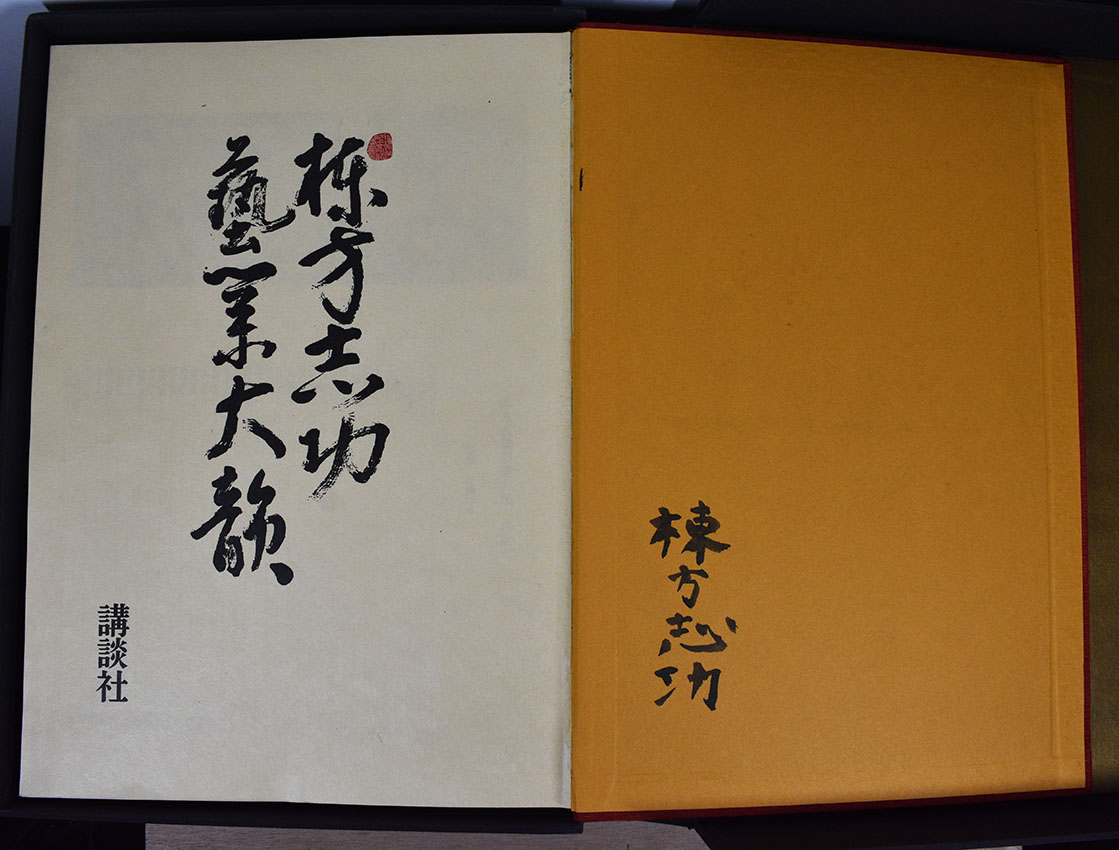 棟方志功
藝業大韻
講談社
棟方志功